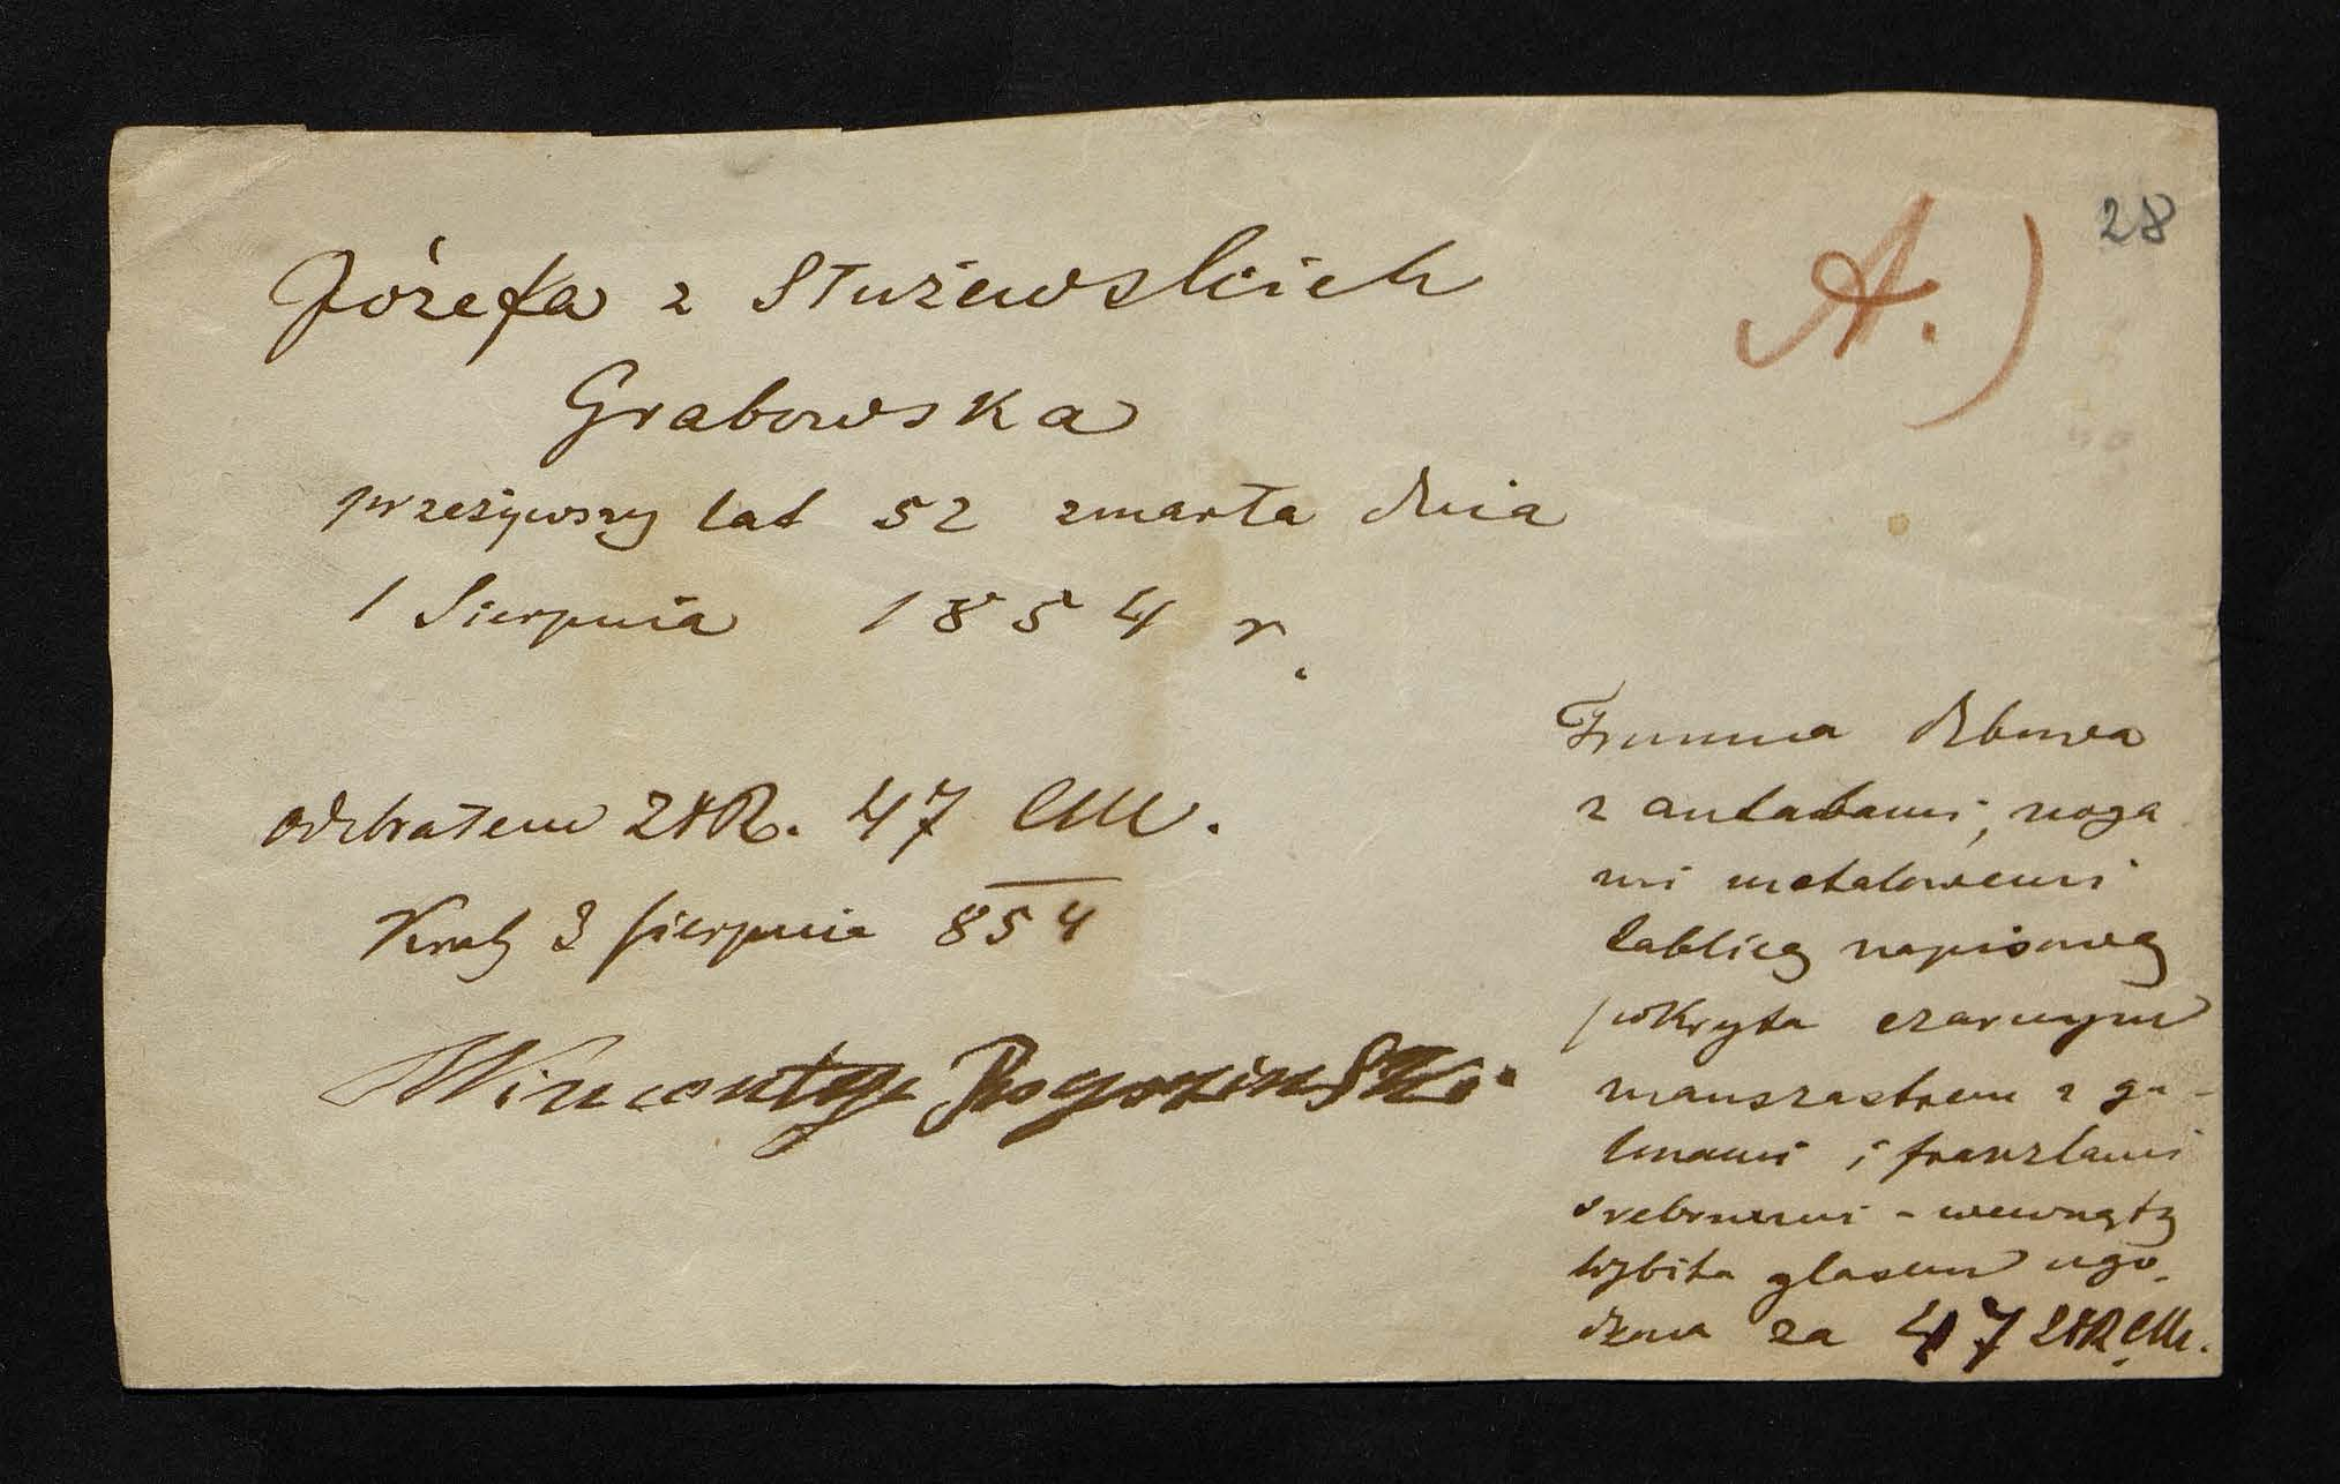 28
A.)
Józefa z Służewskich
Grabowska
przeżywszy lat 52 zmarła dnia
1 Sierpnia 1854 r.
odebrałem ZłR. 47 CM.
3 sierpnia 854
Wincenty Rogoziński
Trumna dębowa
z antabami, noga
mi metalowemi
tablicą napisową
pokryta czarnym
manszastrem z ga-
lonami i franzlami
srebrnemi - wewnątrz
wybita glasem ugo-
dzona za 47 ZłR CM.